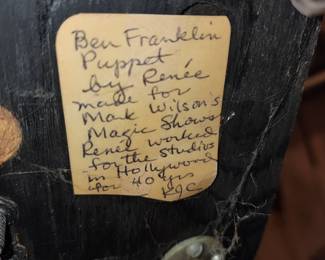 Ben Franklin
Puppet
by Renée
made for
Mark Wilson's
Magic Shows
Renée worked
for the studios
in Hollywood
for 40 yrs
KJC